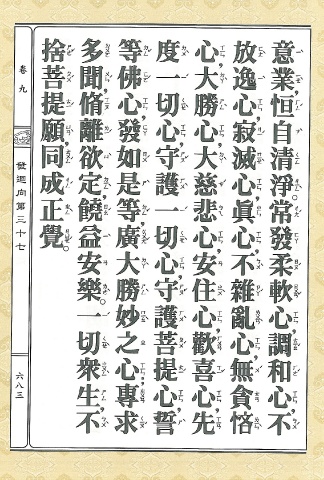 意業恒自清淨。常發柔軟心、調和心、不
放逸心、寂滅心、真心、不雜亂心、無貪悋
心、大勝心、大慈悲心、安住心、歡喜心、先
度一切心、守護一切心、守護菩提心、誓
等佛心。發如是等廣大勝妙之心、專求
多聞、脩離欲定、饒益安樂一切眾生、不
捨菩提願、同成正覺。
卷九
發迴向第三十七
六八三